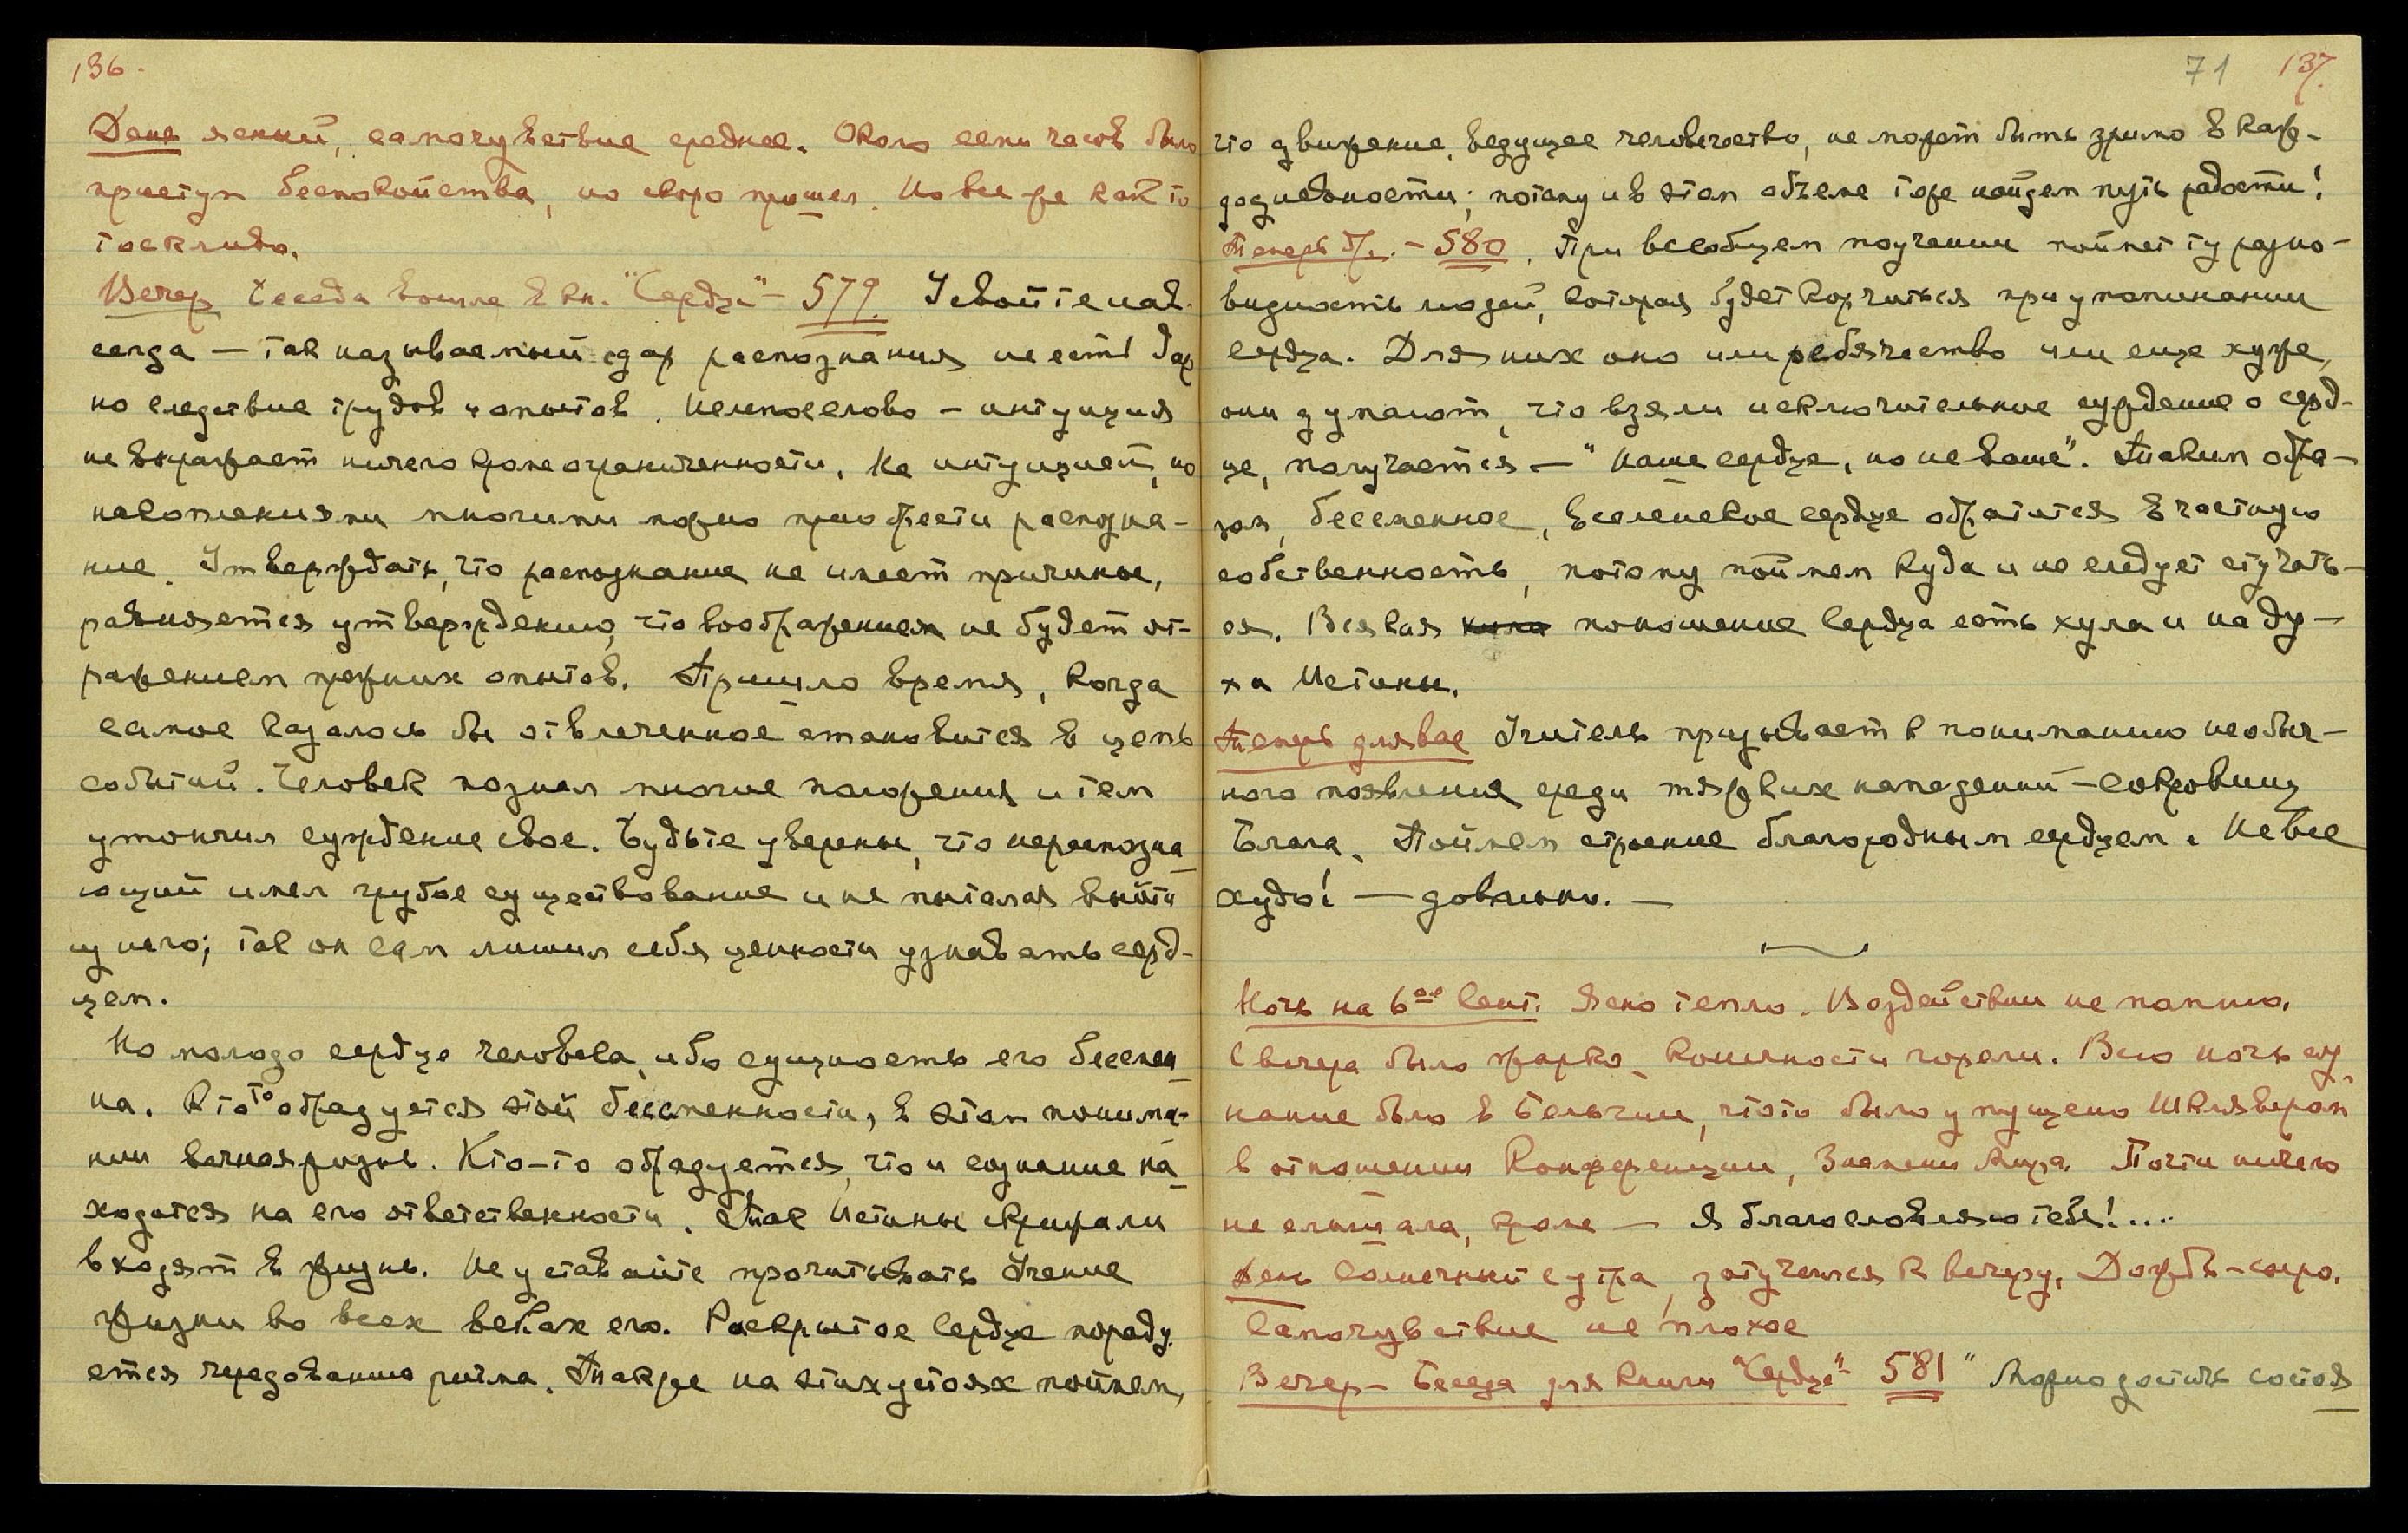 136.
День ясный, самочувствие среднее. Около семи часов был
приступ беспокойства, но скоро прошел. Но все же как то
тоскливо.
Вечер Беседа вошла в кн. "Сердце" – 579. Усвойте нав-
сегда – так называемый дар распознания не есть дар
но следствие трудов и опытов. Нелепое слово – интуиция
не выражает ничего кроме ограниченности. Не интуицией, но
накоплениями многими можно приобрести распозна-
ние. Утверждать, что распознание не имеет причины,
равняется утверждению, что воображение не будет от-
ражением прежних опытов. Пришло время, когда
самое казалось бы отвлеченное становится в цепь
событий. Человек познал многие положения и тем
утончил суждение свое. Будьте уверены, что нераспозна-
ющий имел грубое существование и не пытался выйти
из него; так он сам лишил себя ценности узнавать серд-
цем.
Но молодо сердце человека, ибо сущность его бессмен-
на. Кто то обрадуется этой бессменности, в этом понима-
нии вечная жизнь. Кто-то обрадуется, что и сознание на-
ходится на его ответственности. Так Истины скрижали
входят в жизнь. Не уставайте прочитывать Учение
жизни во всех веках его. Раскрытое сердце пораду-
ется чередованию ритма. Также на этих устоях поймем,
71 137.
что движение, ведущее человечество, не может быть зримо в каж-
додневности; потому и в этом объеме тоже найдем путь радости!
Теперь б/. – 580. При всеобщем поучении поймет ту разно-
видность людей, которая будет корчиться при упоминании
сердца. Для них оно или ребячество или еще хуже,
они думают, что взяли исключительное суждение о серд-
це, получается – "наше сердце, но не ваше". Таким обра-
зом, бессменное, вселенское сердце обратится в частную
собственность, потому поймем куда и не следует стучать-
ся. Всякая поношение сердца есть хула и на Ду-
ха Истины.
Теперь для вас Учитель призывает к пониманию необыч-
ного появления среди тяжких нападений – сокровищ
Блага. Поймем строение благородным сердцем. Не все
худо! – довольно. –
Ночь на 6ое Сент. Ясно тепло. Воздействий не помню.
С вечера было жарко, конечности горели. Всю ночь соз-
нание было в Бельгии, что то было упущено Шклявером
в отношении Конференции, Знамени Мира. Почти ничего
не слышала, кроме – Я благословляю тебя!....
День солнечный с утра, затучился к вечеру. Дождь – сыро.
Самочувствие не плохое
Вечер – Беседа для книги "Сердце" 581 " Можно достичь состоя-